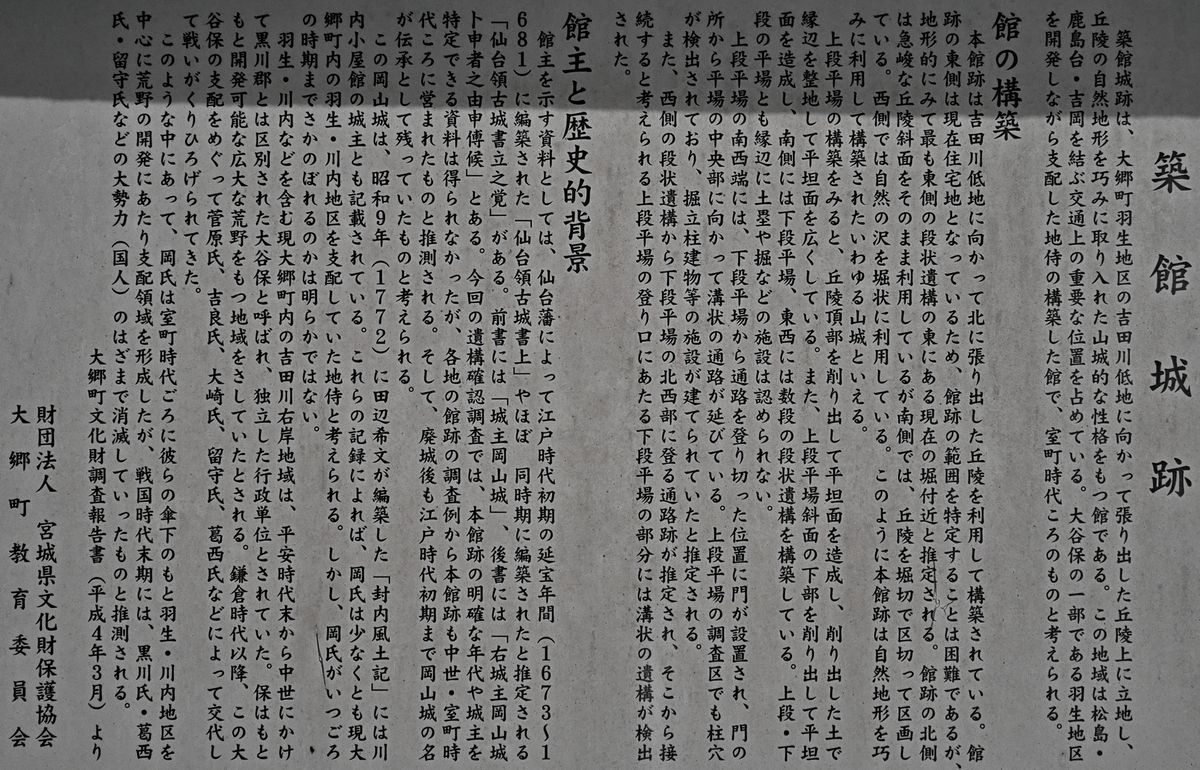 築館城跡
築館城跡は、大郷町羽生地区の吉田川低地に向かって張り出した丘陵上に立地し、
丘陵の自然地形を巧みに取り入れた山城的な性格をもつ館である。この地域は松島・
鹿島台・吉岡を結ぶ交通上の重要な位置を占めている。大谷保の一部である羽生地区
を開発しながら支配した地侍の構築した館で、室町時代ころのものと考えられる。
館の構築
本館跡は吉田川低地に向かって北に張り出した丘陵を利用して構築されている。館
跡の東側は現在住宅地となっているため、館跡の範囲を特定することは困難であるが、
地形的にみて最も東側の段状遺構の東にある現在の堀付近と推定される。館跡の北側
は急峻な丘陵斜面をそのまま利用しているが南側では、丘陵を堀切で区切って区画し
ている。西側では自然の沢を堀状に利用している。このように本館跡は自然地形を巧
みに利用して構築されたいわゆる山城といえる。
上段平場の構築をみると、丘陵頂部を削り出して平坦面を造成し、削り出した土で
縁辺を整地して平坦面を広くしている。また、上段平場斜面の下部を削り出して平坦
面を造成し、南側には下段平場、東西には数段の段状遺構を構築している。上段・下
段の平場とも縁辺に土塁や堀などの施設は認められない。
上段平場の南西端には、下段平場から通路を登り切った位置に門が設置され、門の
所から平場の中央部に向かって溝状の通路が延びている。上段平場の調査区でも柱穴
が検出されており、掘立柱建物等の施設が建てられていたと推定される。
また、西側の段状遺構から下段平場の北西部に登る通路跡が推定され、そこから接
続すると考えられる上段平場の登り口にあたる下段平場の部分には溝状の遺構が検出
された。
館主と歴史的背景
館主を示す資料としては、仙台藩によって江戸時代初期の延宝年間（1673〜1
681）に編築された「仙台領古城書上」やほぼ同時期に編築されたと推定される
「仙台領古城書立之覚」がある。前書には「城主岡山城」、後書には「右城主岡山城
ト申者之由申傳候」とある。今回の遺構確認調査では、本館跡の明確な年代や城主を
特定できる資料は得られなかったが、各地の館跡の調査例から本館跡も中世・室町時
代ころに営まれたものと推測される。そして、廃城後も江戸時代初期まで岡山城の名
が伝承として残っていたものと考えられる。
この岡山城は、昭和9年（1772）に田辺希文が編築した「封内風土記」には川
内小屋館の城主とも記載されている。これらの記録によれば、岡氏は少なくとも現大
郷町内の羽生・川内地区を支配していた地侍と考えられる。しかし、岡氏がいつごろ
の時期までさかのぼれるのかは明らかではない。
羽生・川内などを含む現大郷町内の吉田川右岸地域は、平安時代末から中世にかけ
て黒川郡とは区別された大谷保と呼ばれ、独立した行政単位とされていた。保はもと
もと開発可能な広大な荒野をもつ地域をさしていたとされる。鎌倉時代以降、この大
谷保の支配をめぐって菅原氏、吉良氏、大崎氏、留守氏、葛西氏などによって交代し
て戦いがくりひろげられてきた。
このような中にあって、岡氏は室町時代ごろに彼らの傘下のもと羽生・川内地区を
中心に荒野の開発にあたり支配領域を形成したが、戦国時代末期には、黒川氏・葛西
氏・留守氏などの大勢力（国人）のはざまで消滅していったものと推測される。
大郷町文化財調査報告書（平成4年3月）より
財団法人 宮城県文化財保護協会
大郷町教育委員会